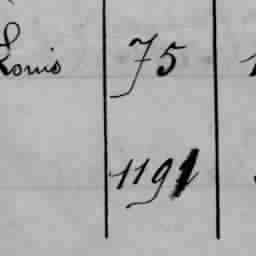 Louis 75
1191